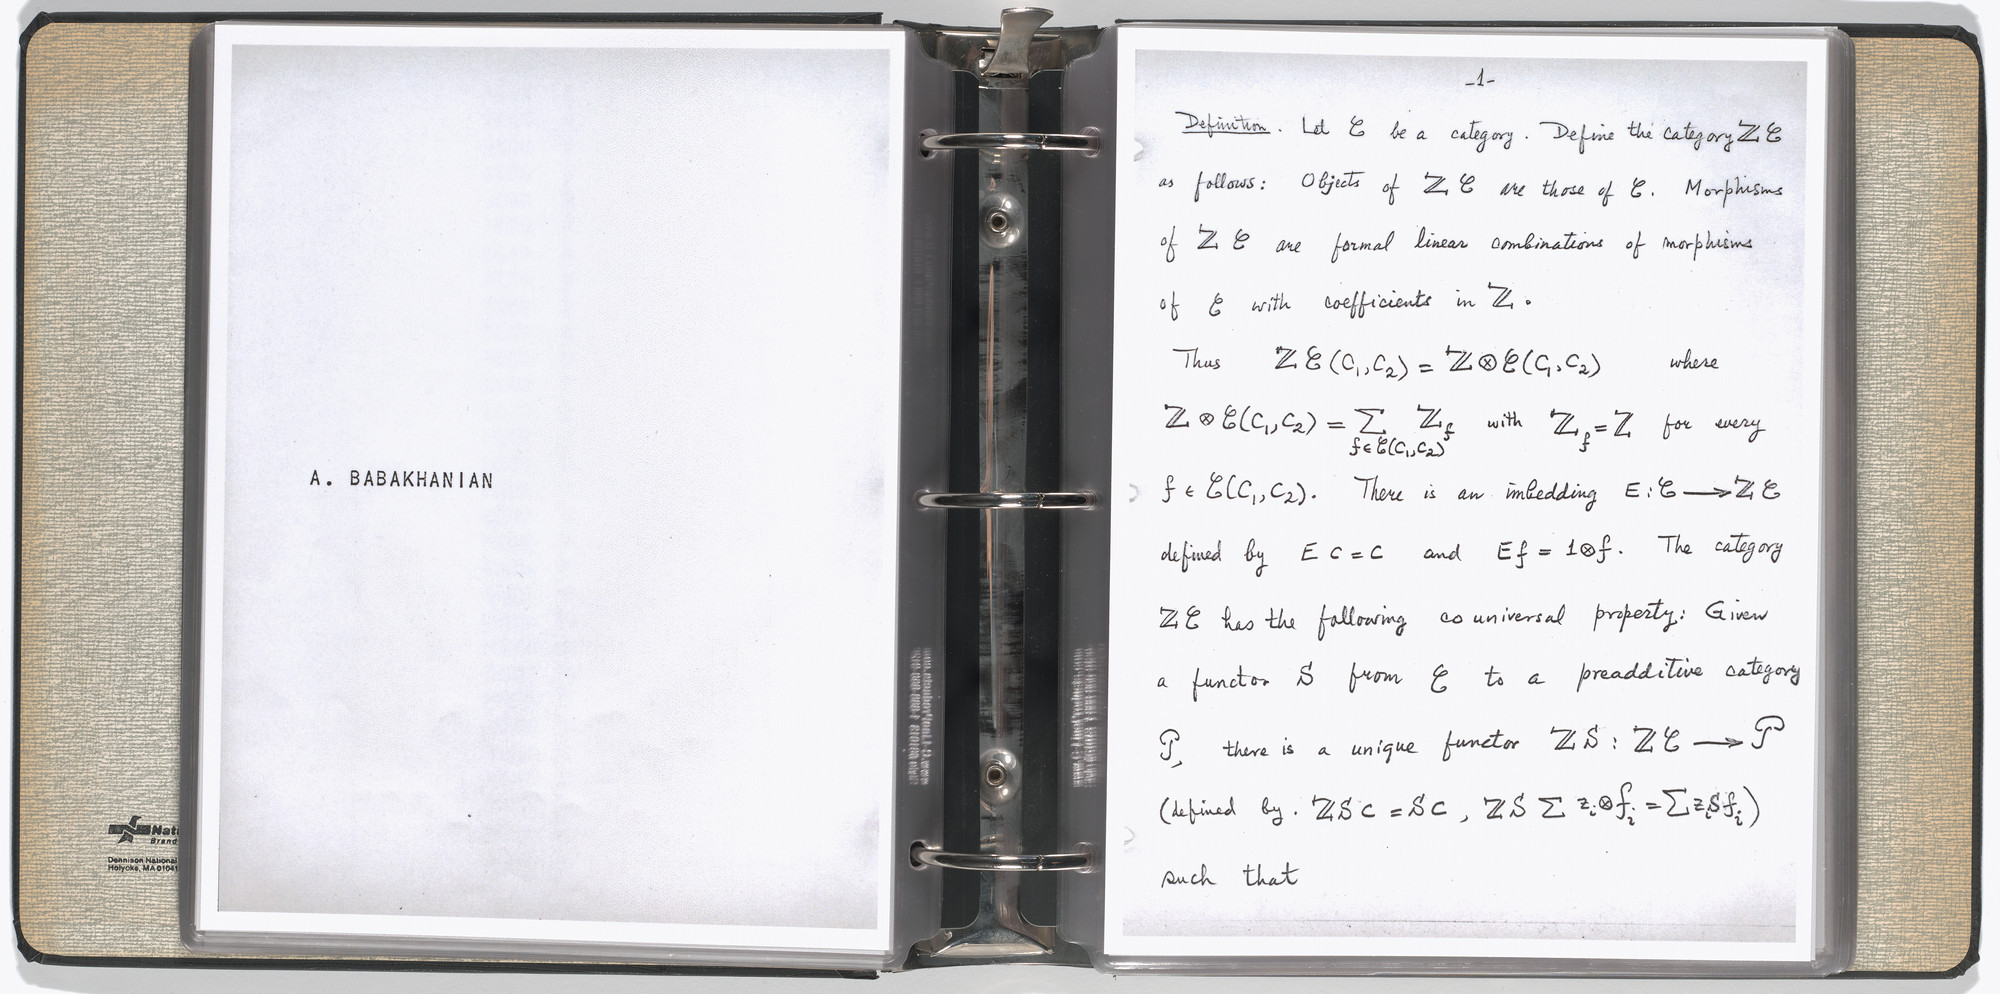 A. BABAKHANIAN
Dennison National
Holyoke, MA 01041
-1-
Definition. Let 𝒞 be a category. Define the category ℤ𝒞
as follows: Objects of ℤ𝒞 are those of 𝒞. Morphisms
of ℤ𝒞 are formal linear combinations of morphisms
of 𝒞 with coefficients in ℤ.
Thus ℤ𝒞(C₁,C₂) = ℤ⊗𝒞(C₁,C₂) where
ℤ⊗𝒞(C₁,C₂) = ∑ ℤ_f with ℤ_f = ℤ for every
f ∈ 𝒞(C₁,C₂)
f ∈ 𝒞(C₁,C₂). There is an imbedding E: 𝒞 ⟶ ℤ𝒞
defined by E C = C and E f = 1⊗f. The category
ℤ𝒞 has the following co universal property: Given
a functor S from 𝒞 to a preadditive category
𝒫, there is a unique functor ℤS : ℤ𝒞 ⟶ 𝒫
(defined by. ℤS C = S C, ℤS ∑ zᵢ⊗fᵢ = ∑ zᵢSfᵢ)
such that